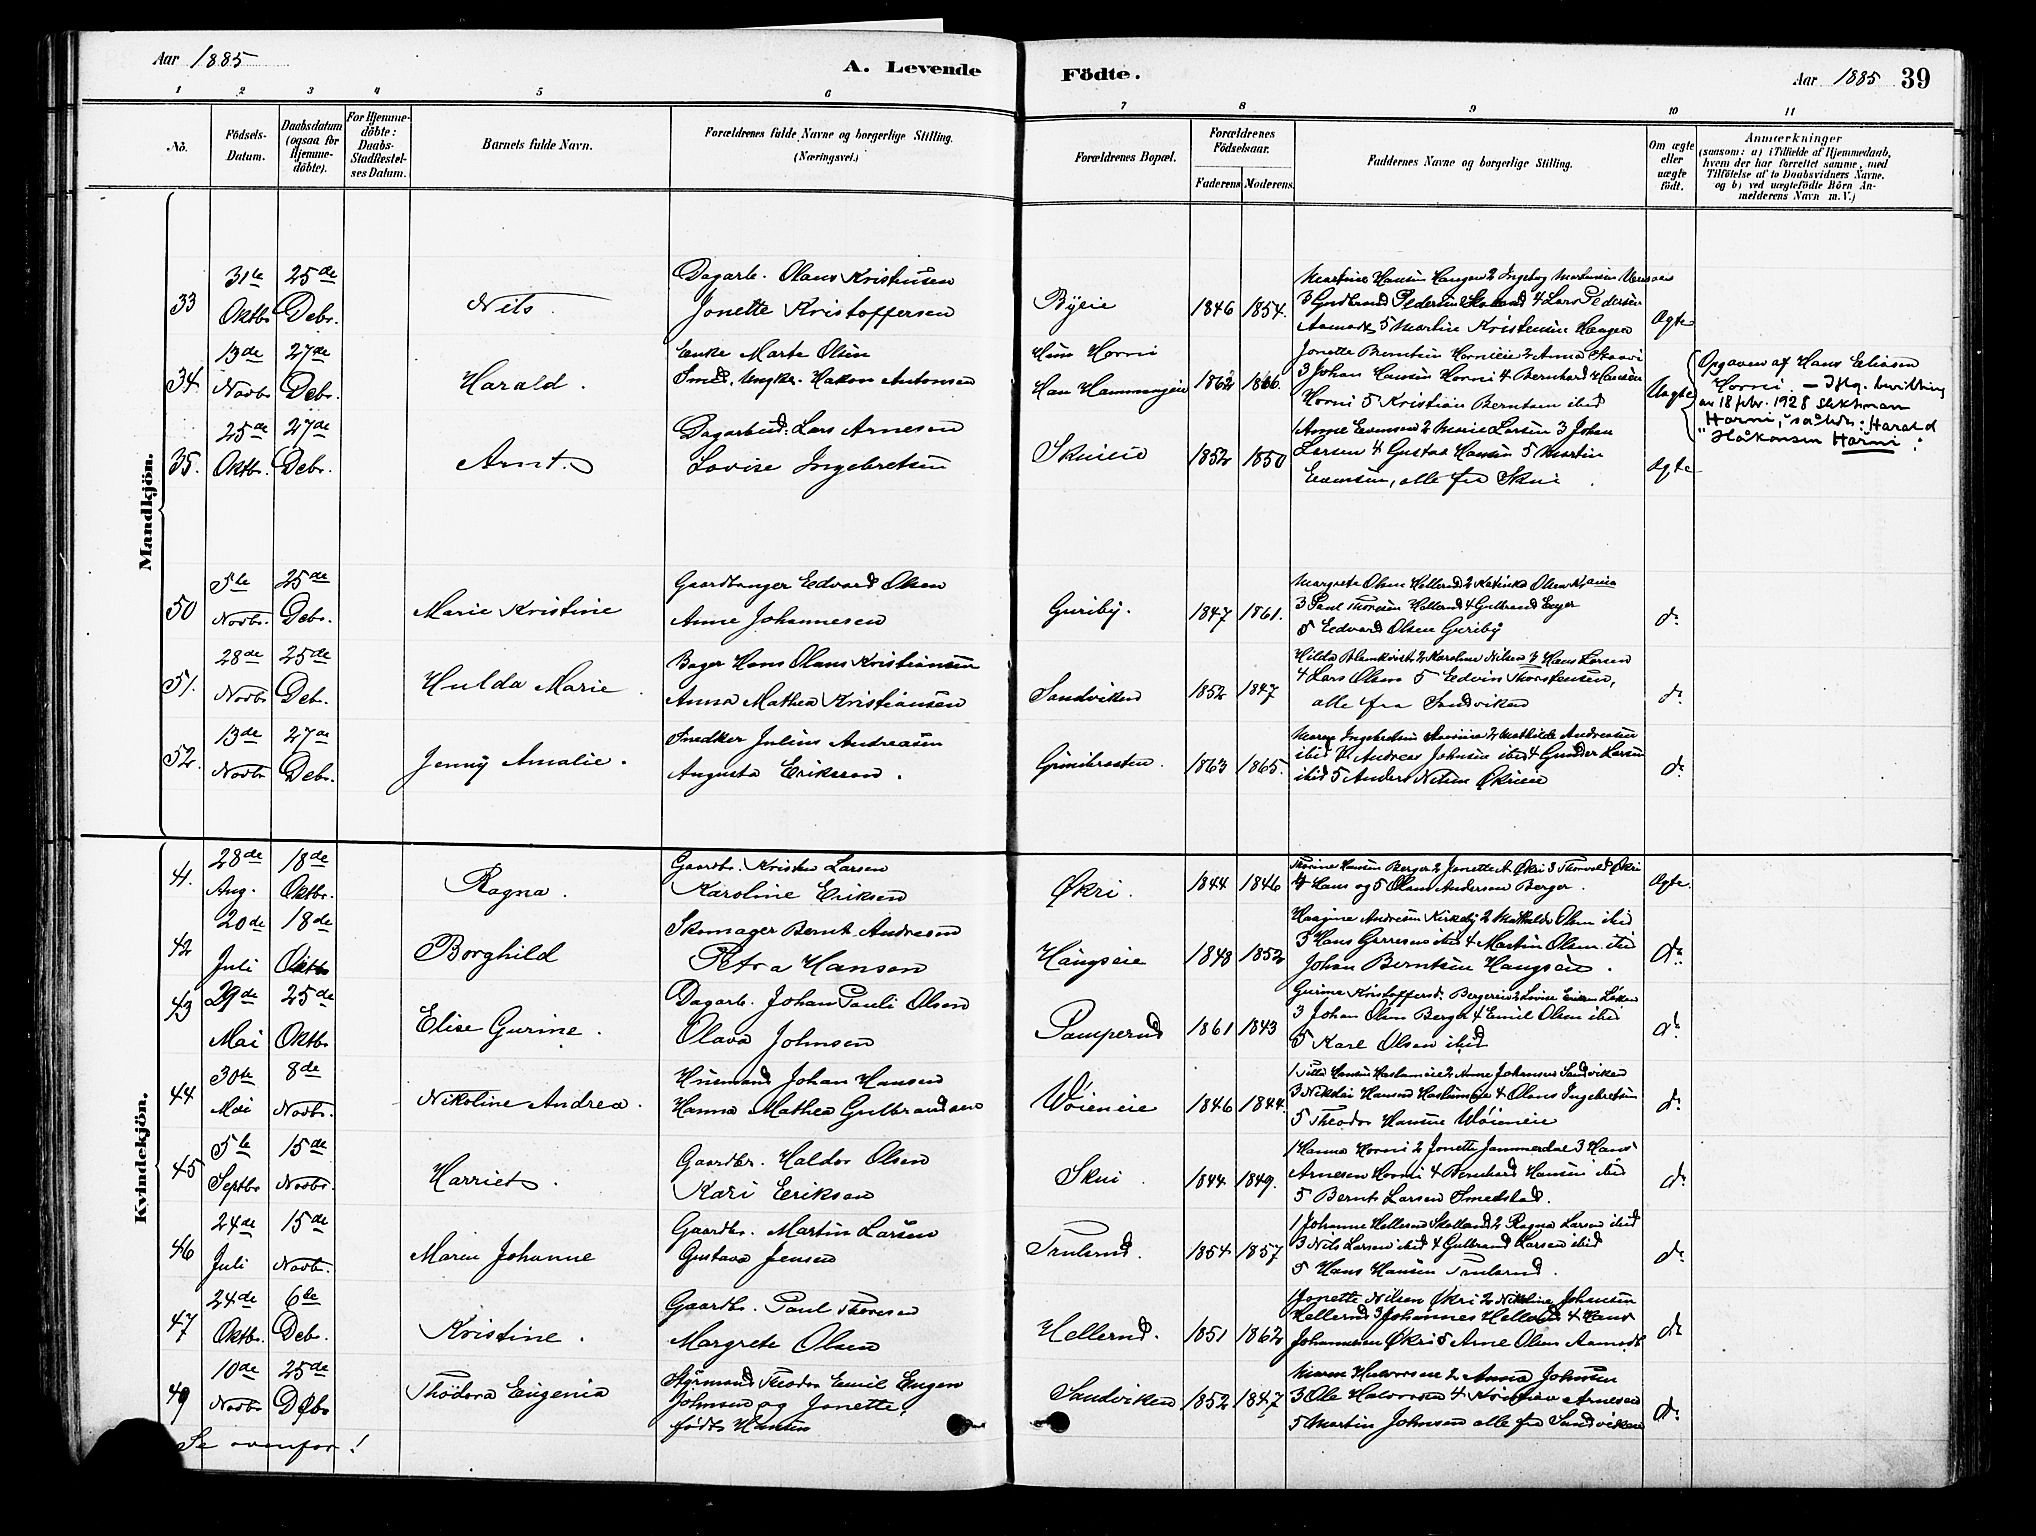 Aar 1885
A. Levende
Födte.
Aar 1885
39
1 2 3 4 5 6 7 8 9 10 11
No.
Födsels-
Datum.
Daabsdatum
(ogsaa for
Hjemme-
döbte).
For Hjemme-
döbte:
Daabs-
Stadfæstel-
ses Datum.
Barnets fulde Navn.
Forældrenes fulde Navne og borgerlige Stilling.
(Næringsvei.)
Forældrenes Bopæl.
Forældrenes
Födselsaar.
Faderens
Moderens.
Faddernes Navne og borgerlige Stilling.
Om ægte
eller
uægte
födt.
Anmærkninger
(saasom: a) i Tilfælde af Hjemmedaab,
hvem der har forrettet samme, med
Tilföielse af to Daabsvidners Navne.
og b) ved uægtefödte Börn An-
melderens Navn m. V.)
Mandkjön.
33
31te Oktbr.
25de Debr.
Nils
Dagarb. Olaus Kristensen
Jonette Kristoffersen
Byeie
1846 1854.
3 Gudbrand Pedersen 4 Lars Pedersen
Aamodt 5 Martin Kristensen Haugen
Ægte
34.
13de Novbr
27de Debr.
Harald.
Enke Marte Olsen
Smed, Ungkr. Hakon Antonsen
Hun Horni
Han
1862 1866.
Jonette Berntsen Hornieie 2 Anna
3 Johan Hansen Horni 4 Bernhard Hansen
Horni 5 Kristian Berntsen ibid
Uægte
Opgaven af Hans Eliasen
Horni. —
av 18 febr. 1928
"Harni," således: Harald
Håkonsen Harni".
35.
25de Oktbr.
27de Debr.
Arnt.
Dagarbeid. Lars Arnesen
Lovise Ingebretsen
Skuieie
1852 1850
1 Anne Evensen 2 Marie Larsen 3 Johan
Larsen 4 Gustav Hansen 5 Martin
Evensen, alle fra Skui
Ægte
50
5te Novbr.
25de Debr.
Marie Kristine
Gaardbruger Edvard Olsen
Anne Johannesen
Guriby.
1847 1861.
Margrete Olsen Hellerud 2 Katinka Olsen
3 Paul Thoresen Hellerud 4 Gulbrand
5 Edvard Olsen Guriby
do
51.
28de Novbr
25de Debr.
Hulda Marie.
Bager Hans Olaus Kristiansen
Anna Mathea Kristiansen
Sandviken
1852 1847
Hilda Blomkvist 2 Karoline Nilsen 3 Hans Larsen
4 Lars Olsen 5 Edvin Thorstensen,
alle fra Sandviken
do
52.
13de Novbr
27de Debr.
Jenny Amalie.
Snedker Julius Andreasen
Augusta Eriksson.
Grinibraaten.
1863 1865.
Maren Ingebretsen 2 Mathilde Andreasen
ibid 3 Andreas Johnsen ibid 4 Gunder Larsen
ibid 5 Anders Nilsen Økrieie
do
Kvindekjön.
41.
28de Aug.
18de Oktbr.
Ragna.
Gaardbr. Kristen Larsen
Karoline Eriksen
Økri.
1844 1846
Thorine Hansen Berger 2 Jonette A Økri 3 Thorvald Økri
4 Hans og 5 Olaus Andersen Berger.
Ægte
42
20de Juli
18de Oktbr
Borghild
Skomager Bernt Andresen
Petra Hansen
Haugseie
1848 1852
Haagine Andresen Kirkeby 2 Mathilde Olsen ibid
3 Hans ibid 4 Martin Olsen ibid
Johan Berntsen Haugseie.
do
43
29de Mai
25de Oktbr
Elise Gurine.
Dagarb. Johan Pauli Olsen
Olava Johnsen
Pamperud
1861 1843
Gurine Kristoffersd. Bergereie 2 Lovise Eriksen
3 Johan Olsen Berger 4 Emil Olsen ibid
5 Karl Olsen ibid
do
44
30te Mai
8de Novbr.
Nikoline Andrea.
Husmand Johan Hansen
Hanna Mathea Gulbrandsen
Wöieneie
1846 1844.
2 Anne Johansen Sandviken
3 Nikolai Hansen 4 Olaus Ingebretsen
5 Theodor Hansen Wöieneie
do
45
5te Septbr
15de Novbr.
Harriet.
Gaardbr. Haldor Olsen
Kari Eriksen
Skui
1844 1849.
1 Hanna Horni 2 Jonette Jammerdal 3 Hans
Arnesen Horni 4 Bernhard Hansen ibid
5 Bernt Larsen Smedstad.
do
46
24de Juli
15de Novbr.
Maren Johanne
Gaardbr. Martin Larsen
Gustava Jensen
Trulerud.
1854 1857
1 Johanne Hellerud 2 Ragna Larsen ibid
3 Nils Larsen ibid 4 Gulbrand Larsen ibid
5 Hans Hansen Trulerud.
do
47
24de Oktbr.
6te Debr.
Kristine.
Gaardbr. Paul Thoresen
Margrete Olsen
Hellerud.
1851 1862
1 Jonette Nilsen Økri 2 Nikoline Johansen
Hellerud 3 Johannes Hellerud 4 Hans
Johannesen Økri 5 Arne Olsen Aamodt
do
49
10de Novbr
25de Debr
Thödora Eugenia
Styrmand Theodor Emil Eugen
Johnsen og Jonette,
födt Hansen
Sandviken
1852 1847
Maren Halvorsen 2 Anna Johnsen
3 Ole Halvorsen 4 Kristian Arnesen
5 Martin Johnsen alle fra Sandviken
do
Se ovenfor!